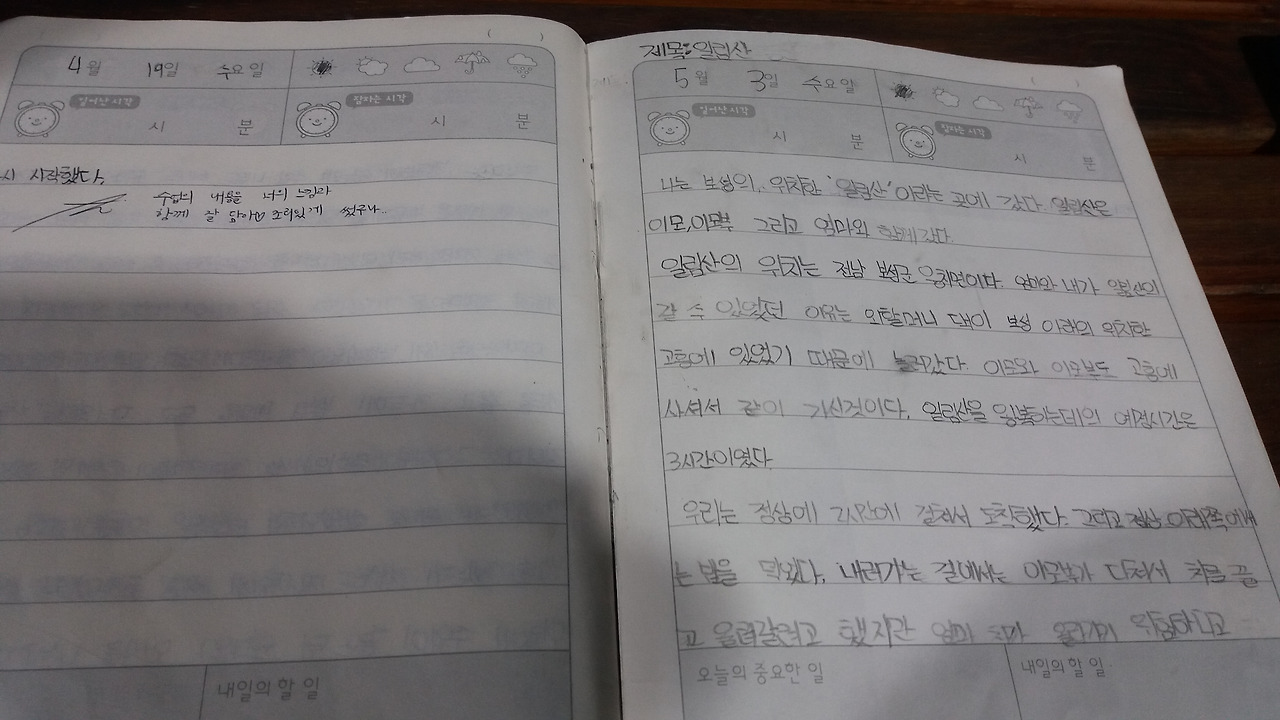 4월 19일 수요일
일어난 시각 시 분 잠자는 시각 시 분
시 시작했다.
수업의 내용을 너의 느낌과
함께 잘 담아 조리있게 썼구나..
내일의 할 일
제목: 일림산
5월 3일 수요일
일어난 시각 시 분 잠자는 시각 시 분
나는 보성의 위치한 '일림산'이라는 곳에 갔다. 일림산은
이모, 이모부 그리고 엄마와 함께 갔다.
일림산의 위치는 전남 보성군 웅치면이다. 엄마와 내가 일림산의
갈 수 있었던 이유는 외할머니 댁이 보성 아래의 위치한
고흥에 있었기 때문에 놀러갔다. 이모와 이모부도 고흥에
사셔서 같이 가신것이다. 일림산을 왕복하는데의 예정시간은
3시간이였다.
우리는 정상에 2시간에 걸쳐서 도착했다. 그리고 정상 아래쪽에서
는 밥을 먹었다. 내려가는 길에서는 이모부가 다쳐서 차를 끌
고 올려갈려고 했지만 엄마 올라가기 위험하다고
오늘의 중요한 일
내일의 할 일